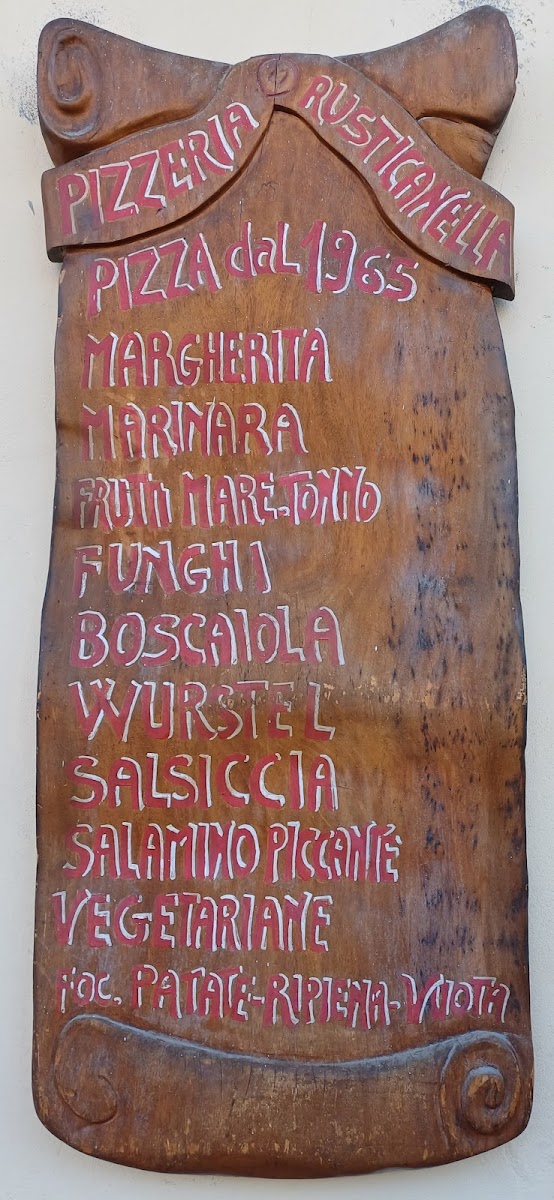 PIZZERIA RUSTICANELLA
PIZZA dal 1965
MARGHERITA
MARINARA
FRUTTI MARE-TONNO
FUNGHI
BOSCAIOLA
WURSTEL
SALSICCIA
SALAMINO PICCANTE
VEGETARIANE
FOC. PATATE-RIPIENA-VUOTA